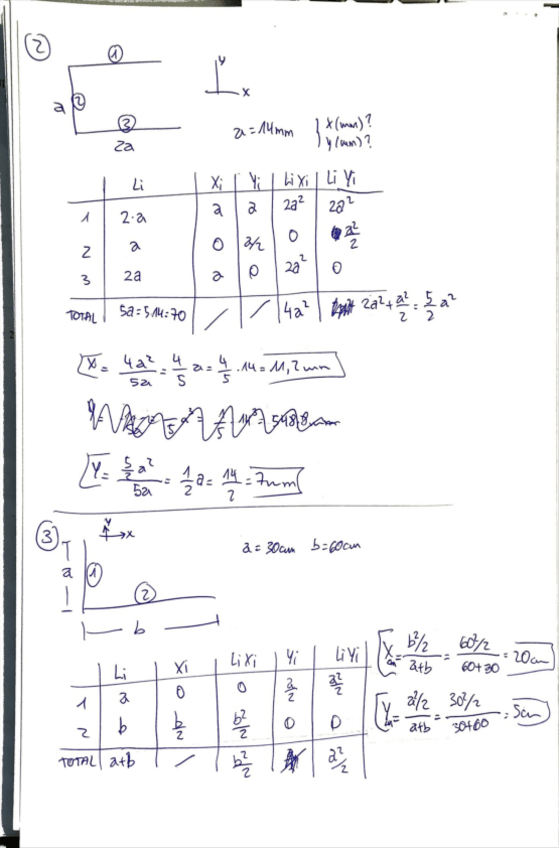 2
1
y
x
a
2
3
2a
a = 14mm
x (mm)?
y (mm)?
Li Xi Yi Li Xi Li Yi
1 2·a a a 2a² 2a²
2 a 0 a/2 0 a²/2
3 2a a 0 2a² 0
TOTAL 5a=5·14=70 / / 4a² 2a²+a²/2=5/2 a²
X = 4a²/5a = 4/5 a = 4/5 · 14 = 11,2mm
Y = 5/2 a²/5a = 1/2 a = 14/2 = 7mm
3
y
x
a = 30cm b = 60cm
a
1
2
b
Li Xi Li Xi Yi Li Yi
1 a 0 0 a/2 a²/2
2 b b/2 b²/2 0 0
TOTAL a+b / b²/2 a²/2
X = b²/2/a+b = 60²/2/60+30 = 20cm
Y = a²/2/a+b = 30²/2/30+60 = 5cm